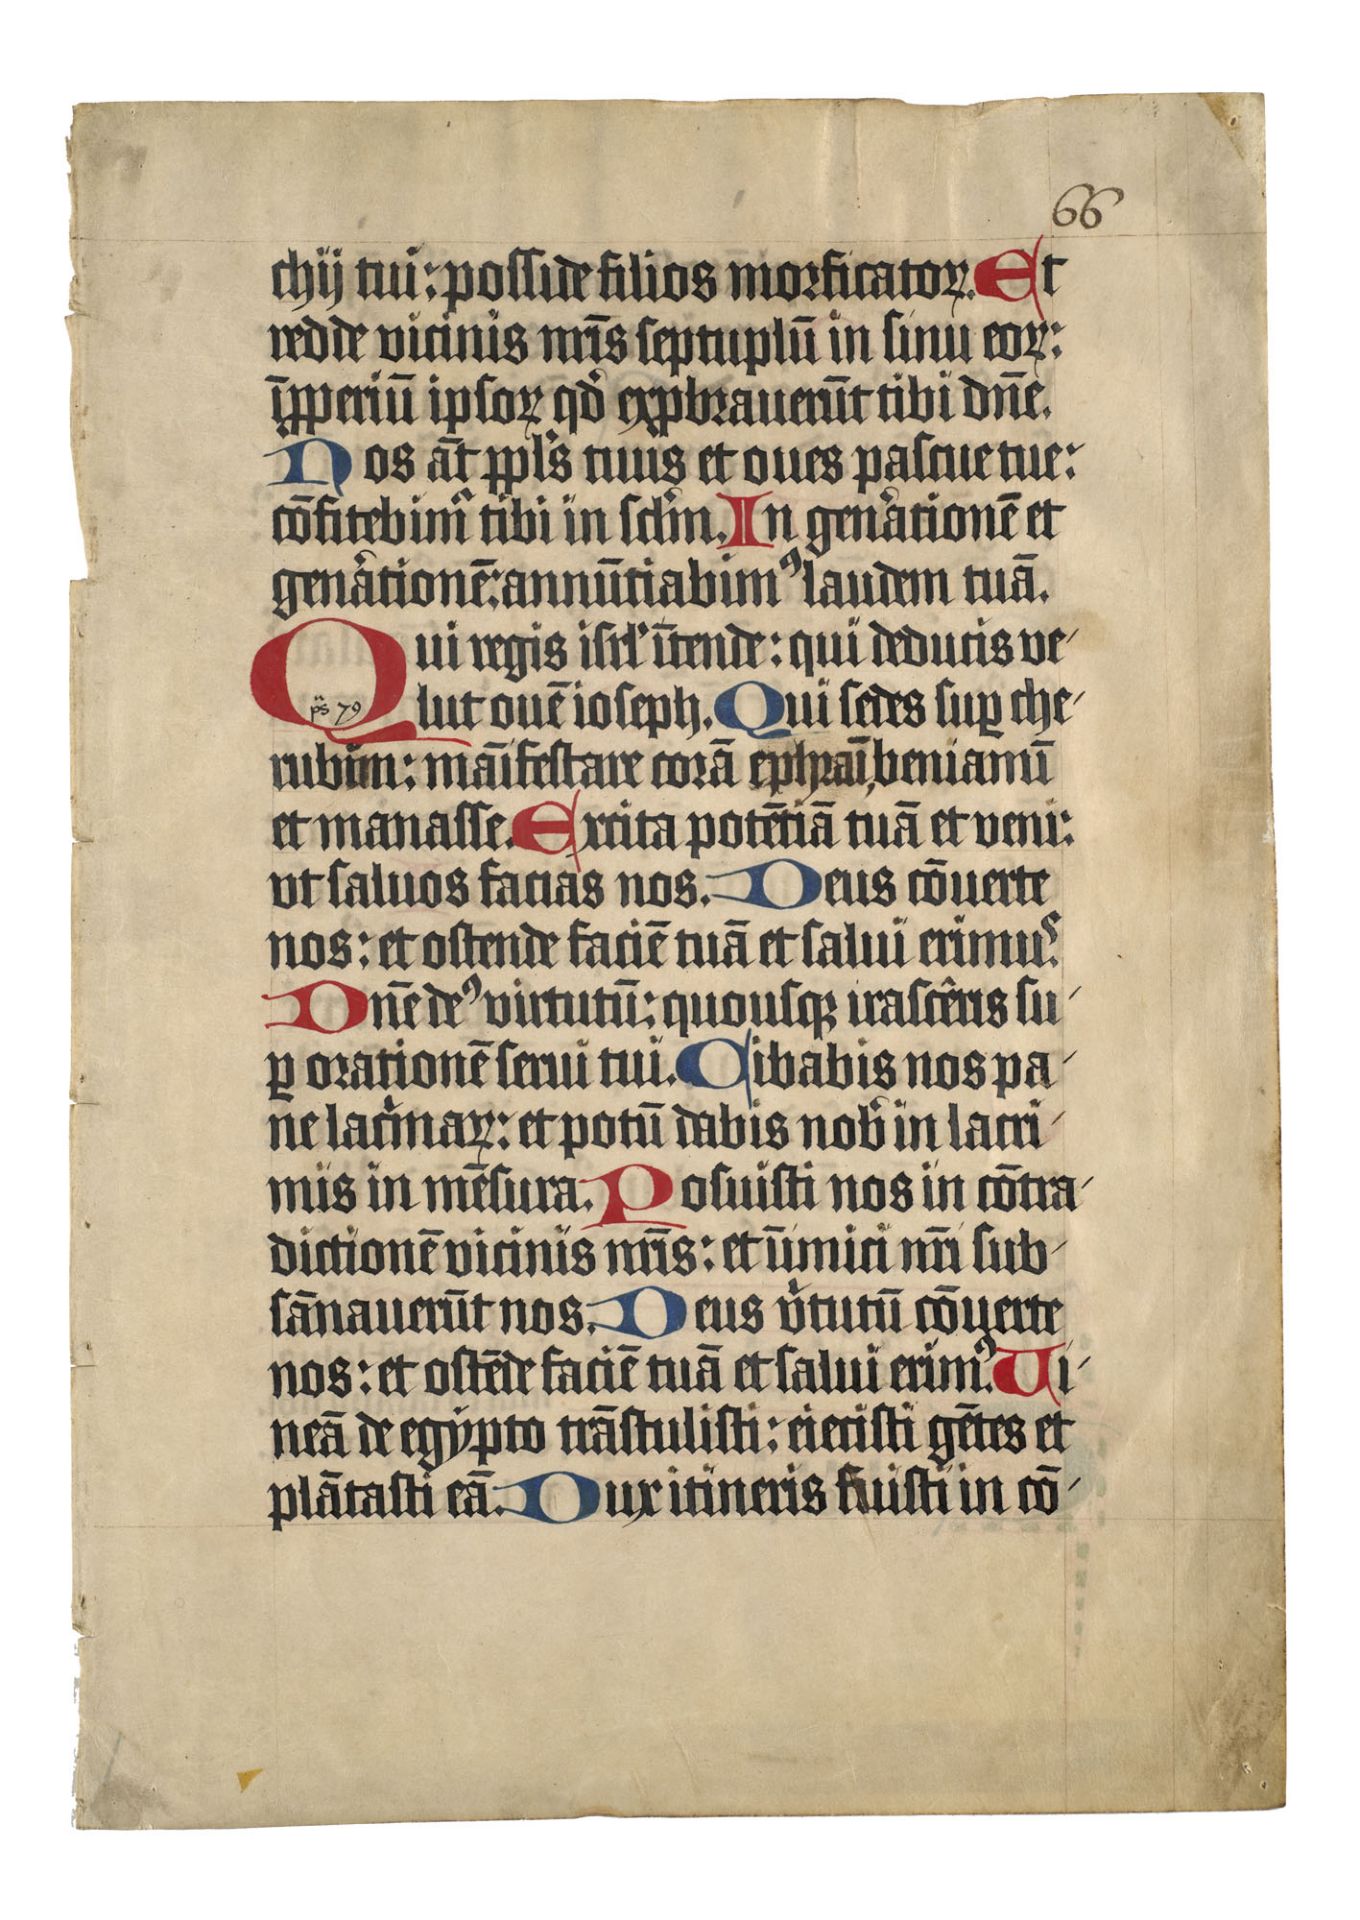 66
chij tui: posside filios mortificatoꝝ. Et
redde vicinis nr̄is septuplū in sinu eoꝝ:
īꝓperiū ipsoꝝ qđ exꝓbrauerūt tibi dn̄e.
Nos at̄ ppl's tuus et oues pascue tue:
cōfitebimꝰ tibi in sclm. In gen'ationē et
gen'ationē: annūtiabimꝰ laudem tuā.
Qui regis isrl' ītende: qui deducis ve-
ps 79
lut ouē ioseph. Qui sedes suꝑ che-
rubim: maīfestare corā ephraī, beniamī
et manasse. Excita potētiā tuā et veni:
vt saluos facias nos. Deus cōuerte
nos: et ostende faciē tuā et salui erimus.
Dn̄e deꝰ virtutū: quousqꝫ irascēris su-
ꝑ orationē serui tui. Cibabis nos pa-
ne lac'maꝝ: et potū dabis nob' in lacri-
mis in mēsura. Posuisti nos in cōtra-
dictionē vicinis nr̄is: et īimici nr̄i sub-
sānauerūt nos. Deus v'tutū cōuerte
nos: et ostēde faciē tuā et salui erimꝰ. Vi-
neā de egypto trāstulisti: eiecisti gētes et
plātasti eā. Dux itineris fuisti in cō-